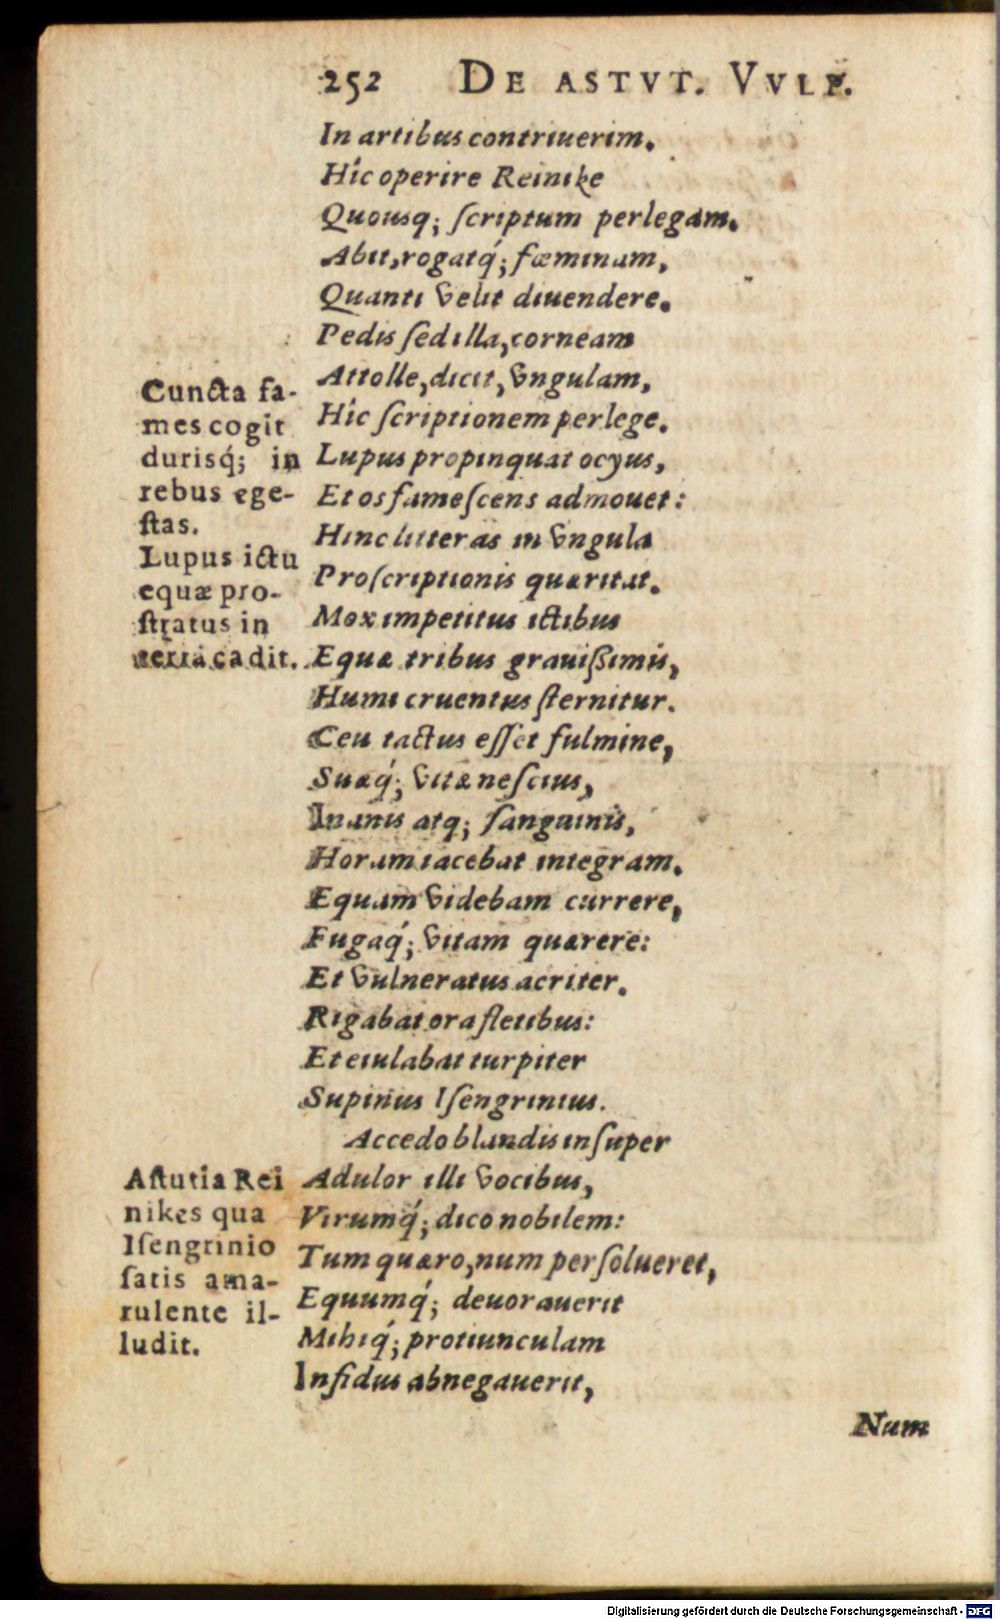 252 DE ASTVT. VVLP.
In artibus contriuerim.
Hîc operire Reinike
Quousq; ſcriptum perlegam.
Abit, rogatq́; fœminam,
Quanti velit diuendere.
Pedis ſed illa, corneam
Attolle, dicit, vngulam,
Hîc ſcriptionem perlege.
Lupus propinquat ocyus,
Et os fameſcens admouet:
Hinc litteras in vngula
Proſcriptionis quæritat.
Mox impetitus ictibus
Equæ tribus grauiſſimis,
Humi cruentus ſternitur.
Ceu tactus eſſet fulmine,
Suæq́; vitæ neſcius,
Inanis atq; ſanguinis,
Horam iacebat integram.
Equam videbam currere,
Fugaq́; vitam quærere:
Et vulneratus acriter.
Rigabat ora fletibus:
Et eiulabat turpiter
Supinus Iſengrinius.
Accedo blandis inſuper
Adulor illi vocibus,
Virumq́; dico nobilem:
Tum quæro, num perſolueret,
Equumq́; deuorauerit
Mihiq́; protiunculam
Infidus abnegauerit,
Num
Cuncta fa-
mes cogit
durisq́; in
rebus ege-
ſtas.
Lupus ictu
equæ pro-
ſtratus in
terrā cadit.
Aſtutia Rei
nikes qua
Iſengrinio
ſatis ama-
rulente il-
ludit.
Digitalisierung gefördert durch die Deutsche Forschungsgemeinschaft - DFG